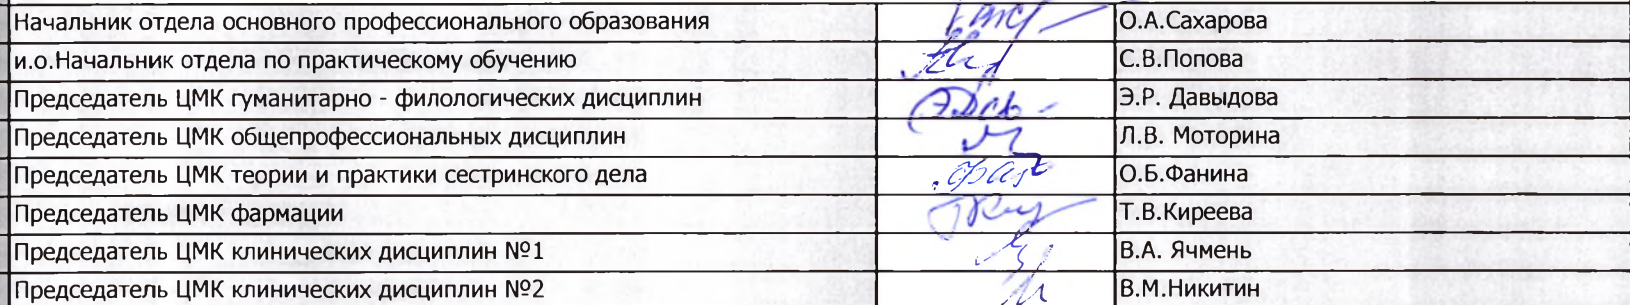 Начальник отдела основного профессионального образования О.А.Сахарова
и.о.Начальник отдела по практическому обучению С.В.Попова
Председатель ЦМК гуманитарно - филологических дисциплин Э.Р. Давыдова
Председатель ЦМК общепрофессиональных дисциплин Л.В. Моторина
Председатель ЦМК теории и практики сестринского дела О.Б.Фанина
Председатель ЦМК фармации Т.В.Киреева
Председатель ЦМК клинических дисциплин №1 В.А. Ячмень
Председатель ЦМК клинических дисциплин №2 В.М.Никитин